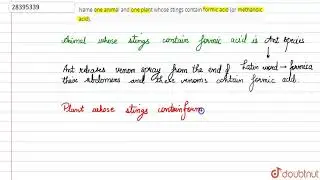 28395339
Name one animal and one plant whose stings contain formic acid (or methanoic acid).
Animal whose stings contain formic acid is Ant species
Ant releases venom spray from the end of Latin word → formica
their abdomens and their venoms contain formic acid.
Plant whose stings contain form
doubtnut